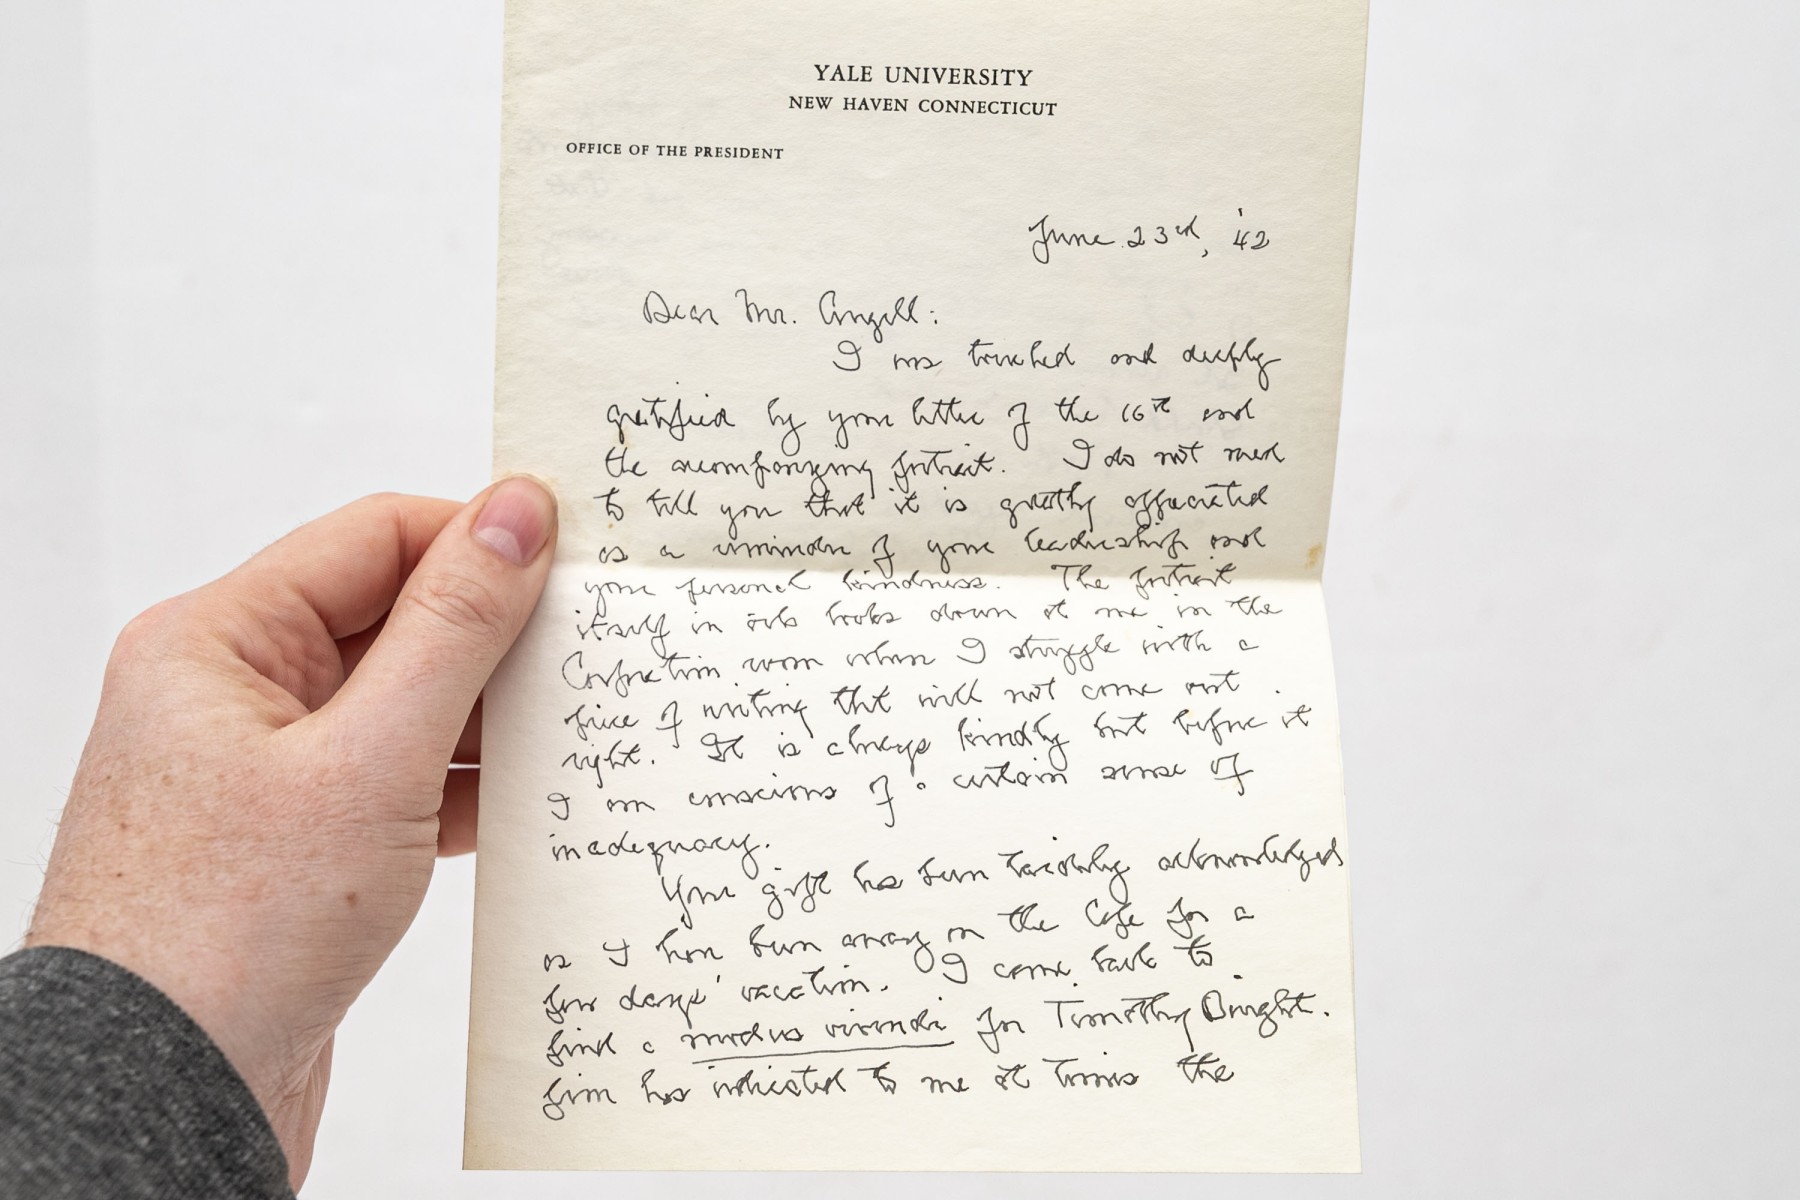 YALE UNIVERSITY
NEW HAVEN CONNECTICUT
OFFICE OF THE PRESIDENT
June 23rd, '42
Dear Mr. Angell:
I was touched and deeply
gratified by your letter of the 16th and
the accompanying portrait. I do not need
to tell you that it is greatly appreciated
as a reminder of your leadership and
your personal kindness. The portrait
itself in oils looks down at me in the
Corporation room when I struggle with a
piece of writing that will not come out
right. It is always kindly but before it
I am conscious of a certain sense of
inadequacy.
Your gift has been tardily acknowledged
as I have been away on the Cape for a
few days' vacation. I came back to
find a modus vivendi for Timothy Dwight.
Jim has indicated to me at times the